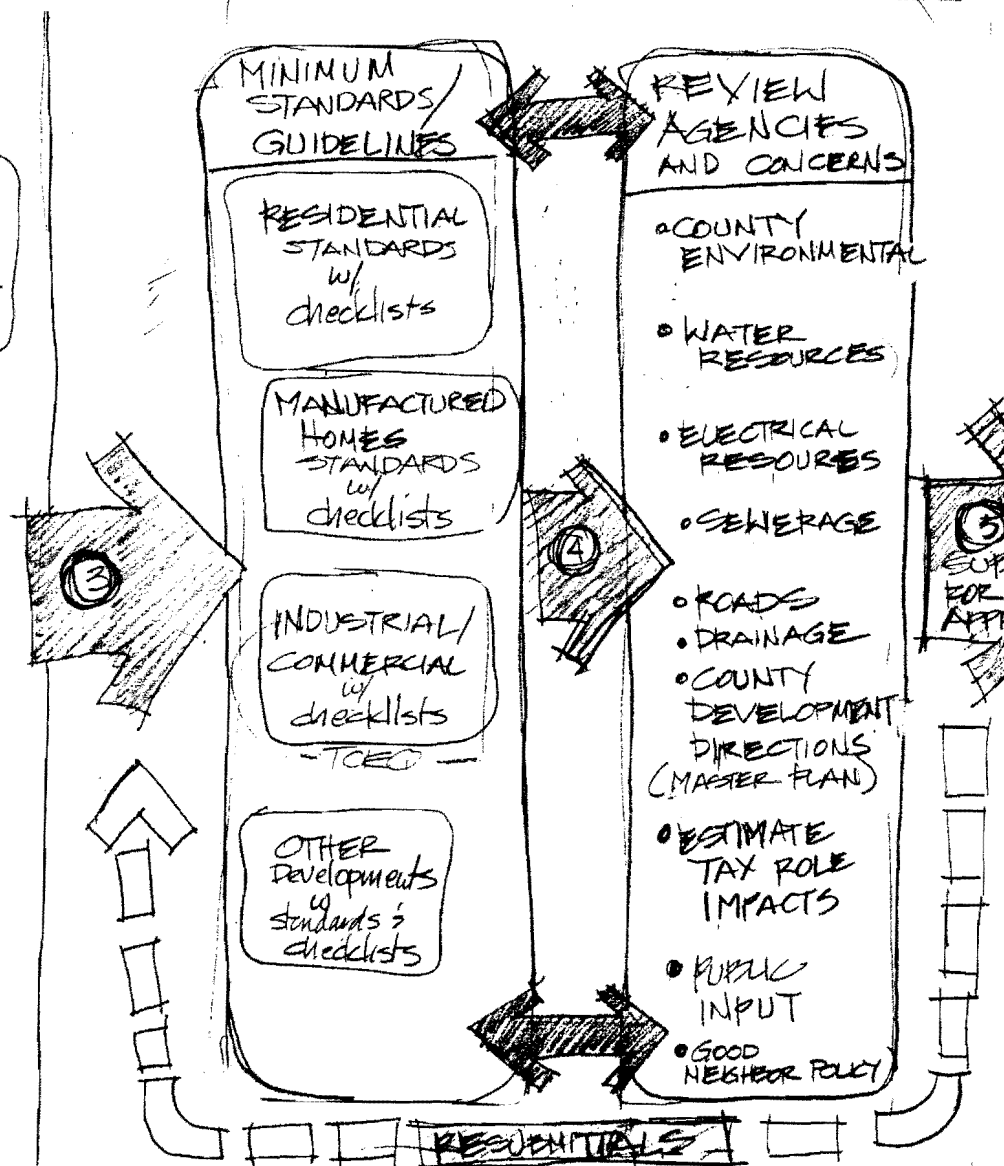 MINIMUM
STANDARDS/
GUIDELINES
RESIDENTIAL
STANDARDS
w/
checklists
MANUFACTURED
HOMES
STANDARDS
w/
checklists
INDUSTRIAL/
COMMERCIAL
w/
checklists
- TCEQ -
OTHER
Developments
w
standards &
checklists
REVIEW
AGENCIES
AND CONCERNS
• COUNTY
ENVIRONMENTAL
• WATER
RESOURCES
• ELECTRICAL
RESOURES
• SEWERAGE
• ROADS
• DRAINAGE
• COUNTY
DEVELOPMENT
DIRECTIONS
(MASTER PLAN)
• ESTIMATE
TAX ROLE
IMPACTS
• PUBLIC
INPUT
• GOOD
NEIGHBOR POLICY
3
4
5
FOR
RESUBMITTALS